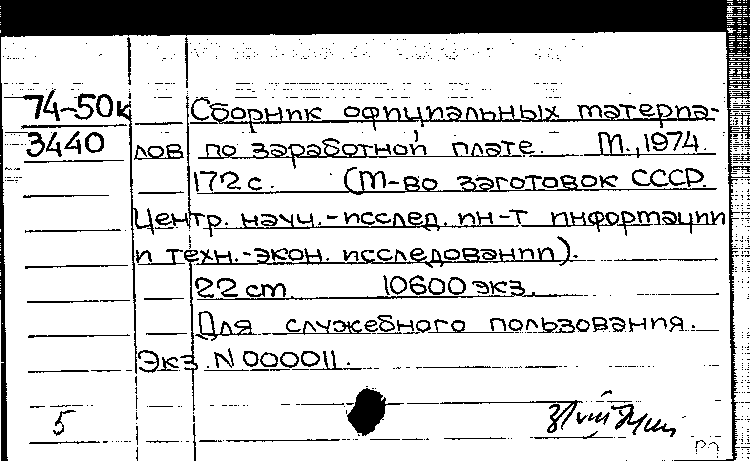 74-50к Сборник официальных материа-
3440 лов по заработной плате. М., 1974.
172 с. (М-во заготовок СССР.
Центр. науч.-исслед. ин-т информации
и техн.-экон. исследований).
22 см 10600 экз.
Для служебного пользования.
Экз. N 000011.
5